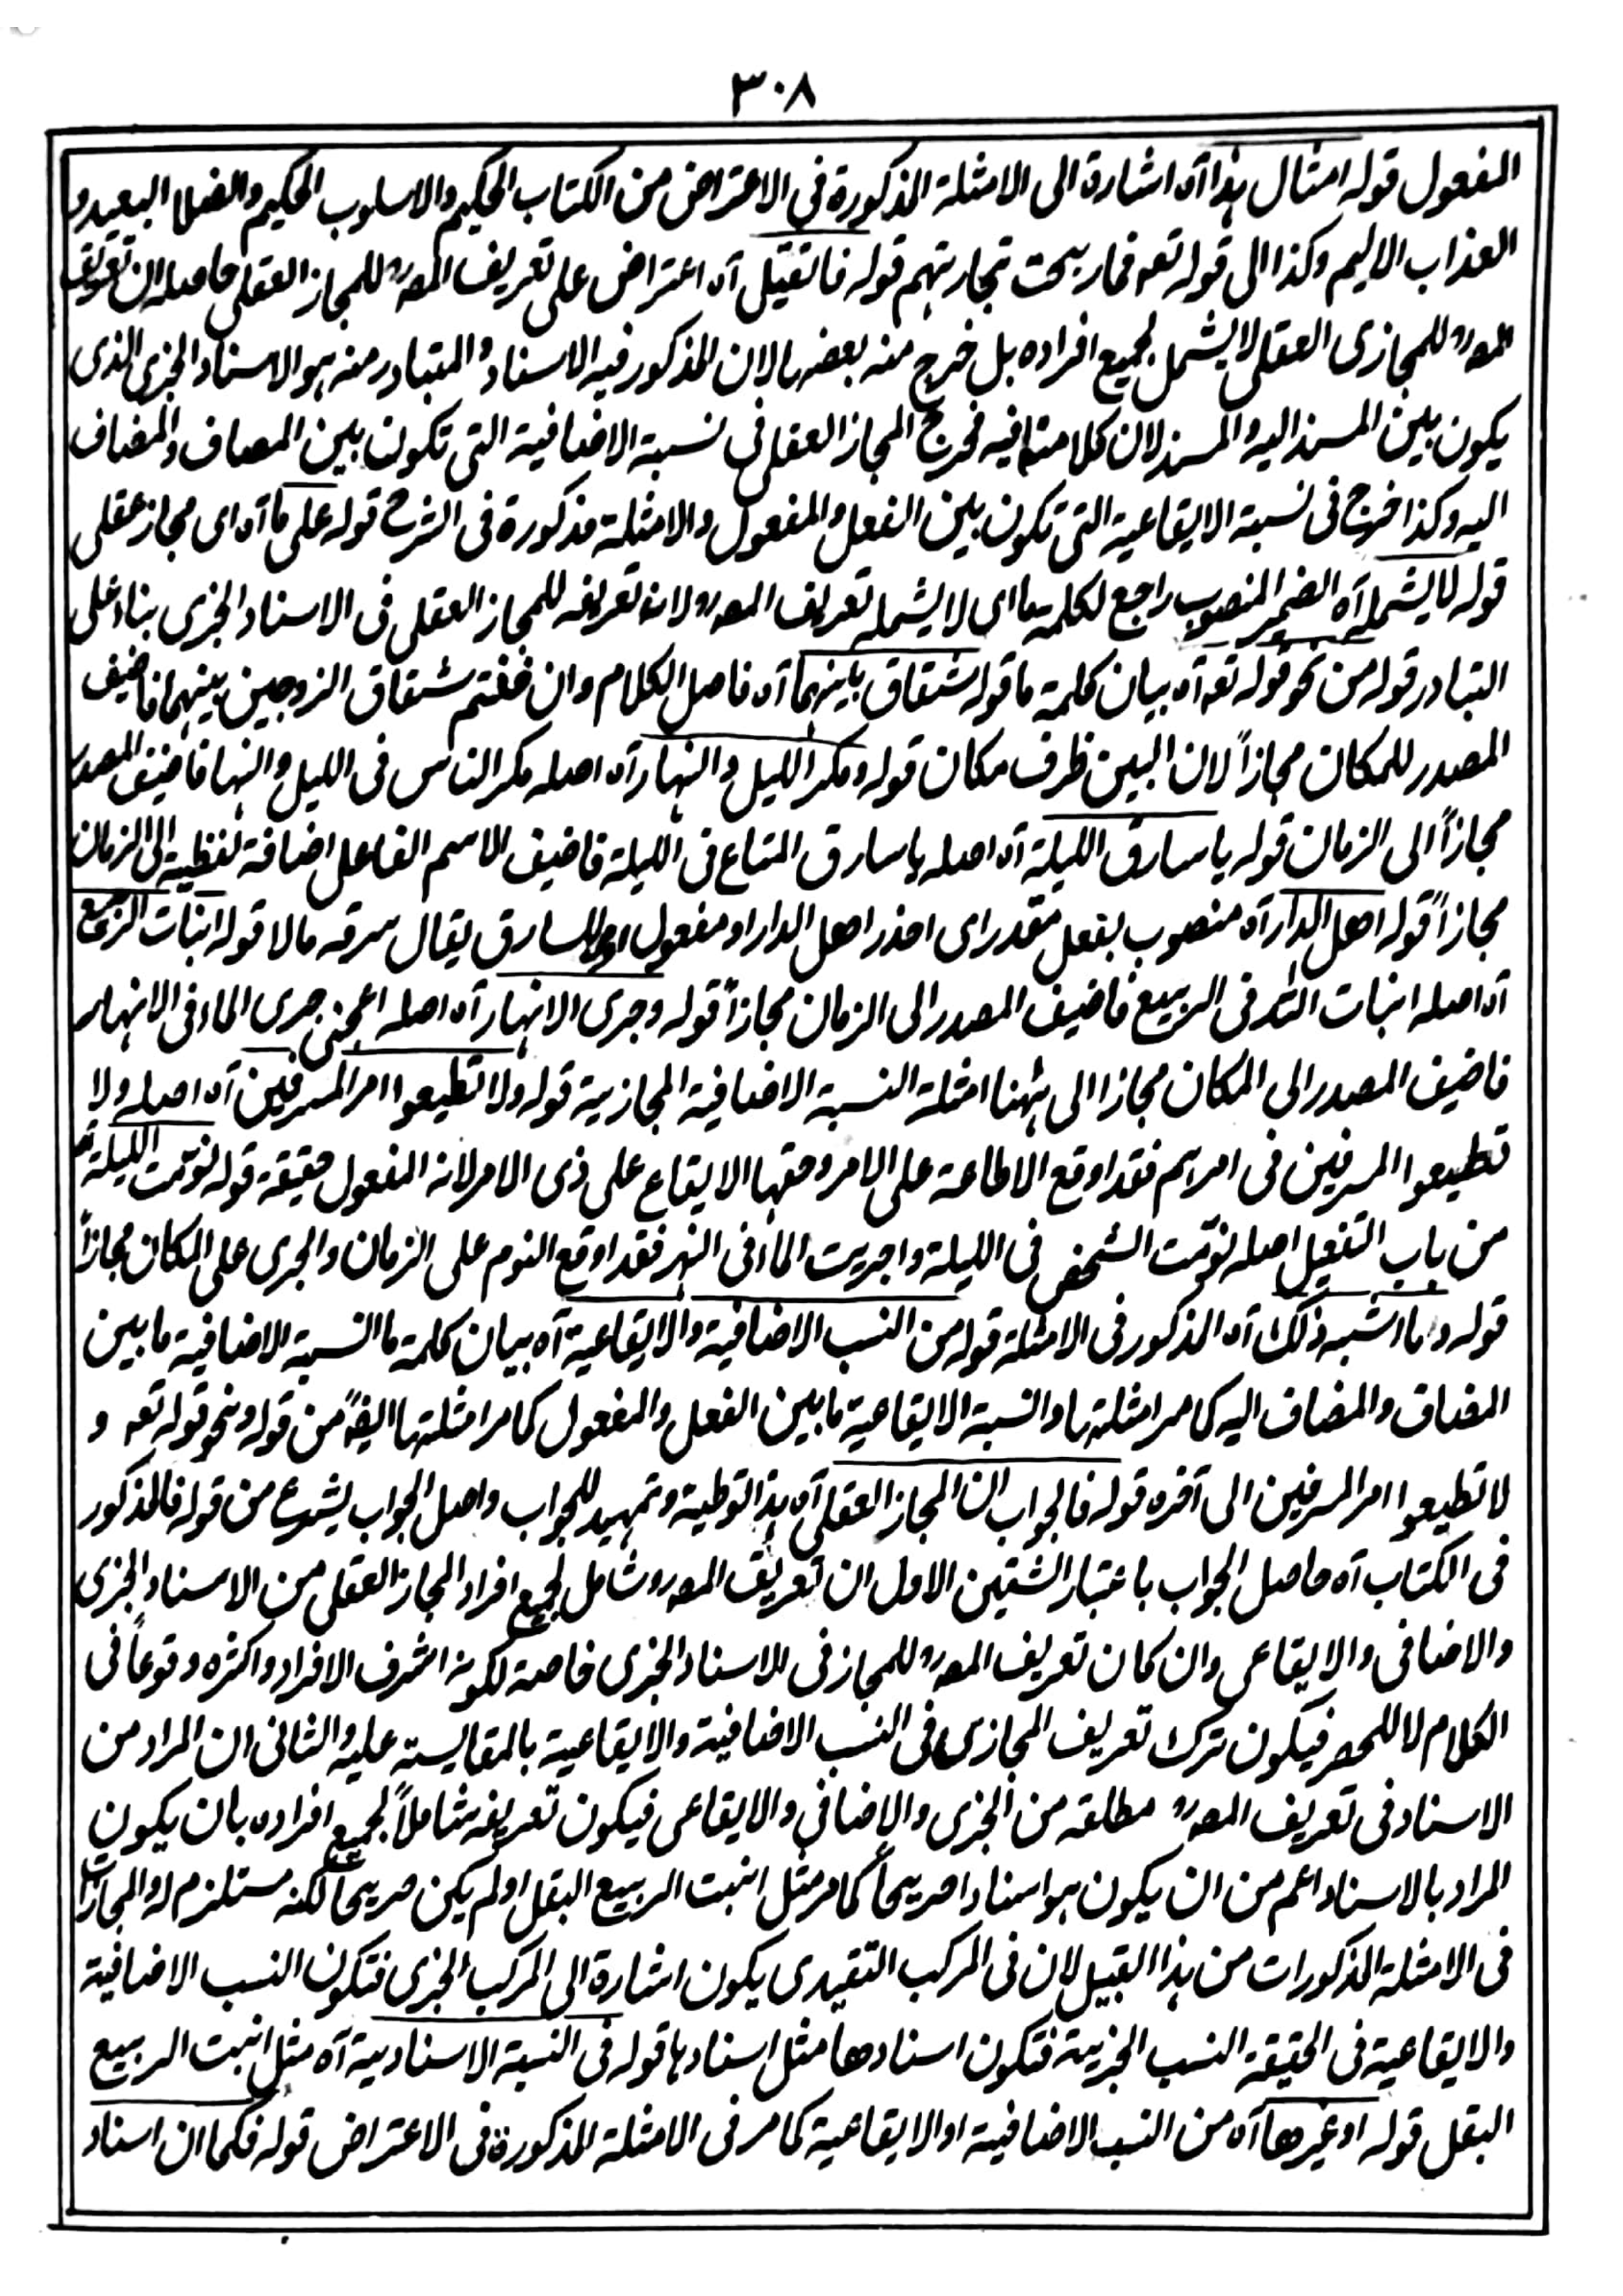 ٣٠٨
المفعول قوله امثال هذا آه اشارة الى الامثلة المذكورة في الاعتراض من الكتاب الحكيم والاسلوب الحكيم والضلال البعيد و
العذاب الاليم وكذا الى قوله تعو فما ربحت تجارتهم قوله فان قيل آه اعتراض على تعريف المصه للمجاز العقلى حاصله ان تعريف
المصه للمجازى العقلى لا يشمل لجميع افراده بل خرج منه بعضها لان المذكور فيه الاسناد والمتبادر منه هو الاسناد الخبرى الذى
يكون بين المسند اليه والمسند لان كلامنا فيه فخرج المجاز العقلى فى نسبة الاضافية التى تكون بين المصاف والمضاف
اليه وكذا خرج فى نسبة الايقاعية التى تكون بين الفعل والمفعول والامثلة مذكورة فى الشرح قوله على ما آه اى مجاز عقلى
قوله لا يشمله آه الضمير المنصوب راجع لكلمة ما اى لا يشمله تعريف المصه لان تعريفه للمجاز العقلى فى الاسناد الخبرى بناء على
التبادر قوله من نحو قوله تعو آه بيان كلمة ما قوله شقاق بينهما آه فاصل الكلام وان خفتم شقاق الزوجين بينهما فاضيف
المصدر للمكان مجازاً لان البين ظرف مكان قوله ومكر الليل والنهار آه اصله مكر الناس فى الليل والنهار فاضيف المصدر
مجازاً الى الزمان قوله يا سارق الليلة آه اصله يا سارق المتاع فى الليلة فاضيف الاسم الفاعل اضافة لفظية الى الزمان
مجازاً قوله اهل الدار آه منصوب بفعل مقدر اى احذر اهل الدار او مفعول اول لسارق يقال سرقه مالا قوله انبات الربيع
آه اصله انبات الله فى الربيع فاضيف المصدر الى الزمان مجازاً قوله وجرى الانهار آه اصله اعجبنى جرى الماء فى الانهار
فاضيف المصدر الى المكان مجازا الى ههنا امثلة النسبة الاضافية المجازية قوله ولا تطيعوا امر المسرفين آه اصله ولا
تطيعوا المسرفين فى امرهم فقد اوقع الاطاعة على الامر وحقها الايقاع على ذى الامر لانه المفعول حقيقة قوله نومت الليلة آه
من باب التفعيل اصله نومت الشخص فى الليلة واجريت الماء فى النهر فقد اوقع النوم على الزمان والجرى على المكان مجازاً
قوله وما اشبه ذلك آه المذكور فى الامثلة قوله من النسب الاضافية والايقاعية آه بيان كلمة ما النسبة الاضافية ما بين
المضاف والمضاف اليه كما مر امثلتها والنسبة الايقاعية ما بين الفعل والمفعول كما مر امثلتها ايضاً من قوله ونحو قوله تعو و
لا تطيعوا امر المسرفين الى آخره قوله فالجواب ان المجاز العقلى آه هذا توطية وتمهيد للجواب واصل الجواب يشرع من قوله فالمذكور
فى الكتاب آه حاصل الجواب باعتبار الشقين الاول ان تعريف المصه شامل لجميع افراد المجاز العقلى من الاسناد الخبرى
والاضافى والايقاعى وان كان تعريف المصه للمجاز فى الاسناد الخبرى خاصة لكونه اشرف الافراد واكثره وقوعاً فى
الكلام لا للحصر فيكون ترك تعريف المجازى فى النسب الاضافية والايقاعية بالمقايسة عليه والثانى ان المراد من
الاسناد فى تعريف المصه مطلقه من الخبرى والاضافى والايقاعى فيكون تعريفه شاملاً لجميع افراده بان يكون
المراد بالاسناد اعم من ان يكون هو اسنادا صريحاً كما مر مثل انبت الربيع البقل او لم يكن صريحاً لكنه مستلزم له والمجازات
فى الامثلة المذكورات من هذا القبيل لان فى المركب التقيدى يكون اشارة الى المركب الخبرى فتكون النسب الاضافية
والايقاعية فى الحقيقة النسب الخبرية فتكون اسنادها مثل اسنادها قوله فى النسبة الاسنادية آه مثل انبت الربيع
البقل قوله او غيرها آه من النسب الاضافية او الايقاعية كما مر فى الامثلة المذكورة فى الاعتراض قوله فكما ان اسناد